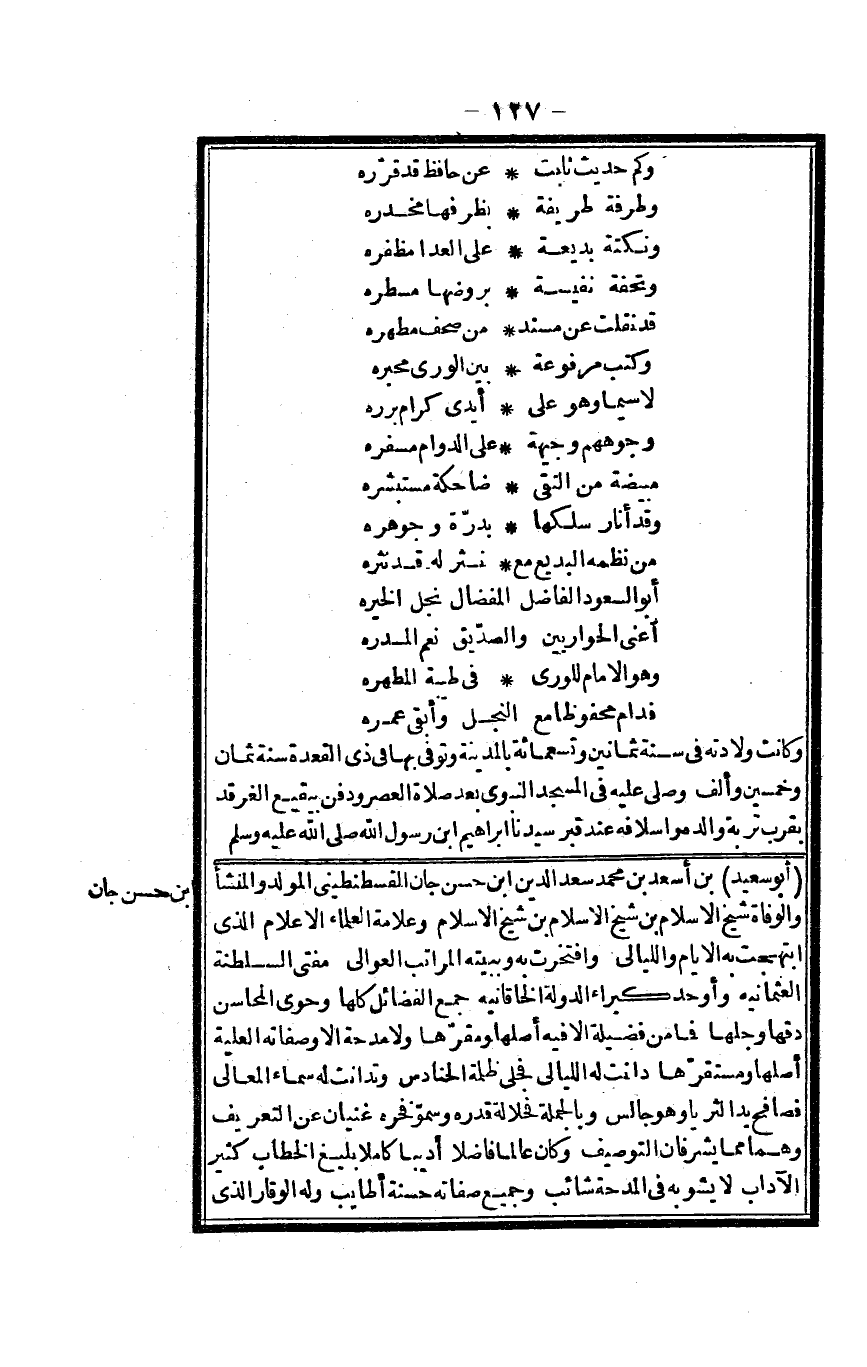 – ١٢٧ –
وكم حديث ثابت * عن حافظ قد قرّره
وطرفة طريفة * بظرفها مخدره
ونكتة بديعة * على العدا مظفره
وتحفة نفيسة * بروضها مسطره
قد نقلت عن مسند * من صحف مطهره
وكتب مرفوعة * بين الورى محبره
لاسيما وهو على * أيدى كرام برره
وجوههم وجيهة * على الدوام مسفره
مبيضة من التقى * ضاحكة مستبشره
وقد أنار سلكها * بدرّة وجوهره
من نظمه البديع مع * نثر له قد نثره
أبو السعود الفاضل المفضال نجل الخيره
أعنى الحواريين والصدّيق نعم المدره
وهو الامام للورى * فى طيبة المطهره
فدام محفوظا مع النجل وأبقى عمره
وكانت ولادته فى سنة ثمانين وتسعمائة بالمدينة وتوفى بها فى ذى القعدة سنة ثمان
وخمسين وألف وصلى عليه فى المسجد النبوى بعد صلاة العصر ودفن ببقيع الغرقد
بقرب تربة والده واسلافه عند قبر سيدنا ابراهيم ابن رسول الله صلى الله عليه وسلم
ابن حسن جان
(أبو سعيد) بن أسعد بن محمد سعد الدين ابن حسن جان القسطنطينى المولد والمنشأ
والوفاة شيخ الاسلام بن شيخ الاسلام بن شيخ الاسلام وعلامة العلماء الاعلام الذى
ابتهجت به الايام والليالى وافتخرت به وببيته المراتب العوالى مفتى السلطنة
العثمانيه وأوحد كبراء الدولة الخاقانيه جمع الفضائل كلها وحوى المحاسن
دقها وجلها فما من فضيلة الا فيه أصلها ومقرّها ولا مدحة الا وصفاته العلية
أصلها ومستقرّها دانت له الليالى فجلى ظلمة الحنادس وتدانت له سماء المعالى
فصافح يد الثريا وهو جالس وبالجملة فجلالة قدره وسموّ فخره غنيان عن التعريف
وهما مما يشرفان التوصيف وكان عالما فاضلا أديبا كاملا بليغ الخطاب كثير
الآداب لا يشوبه فى المدحة شائب وجميع صفاته حسنة أطايب وله الوقار الذى